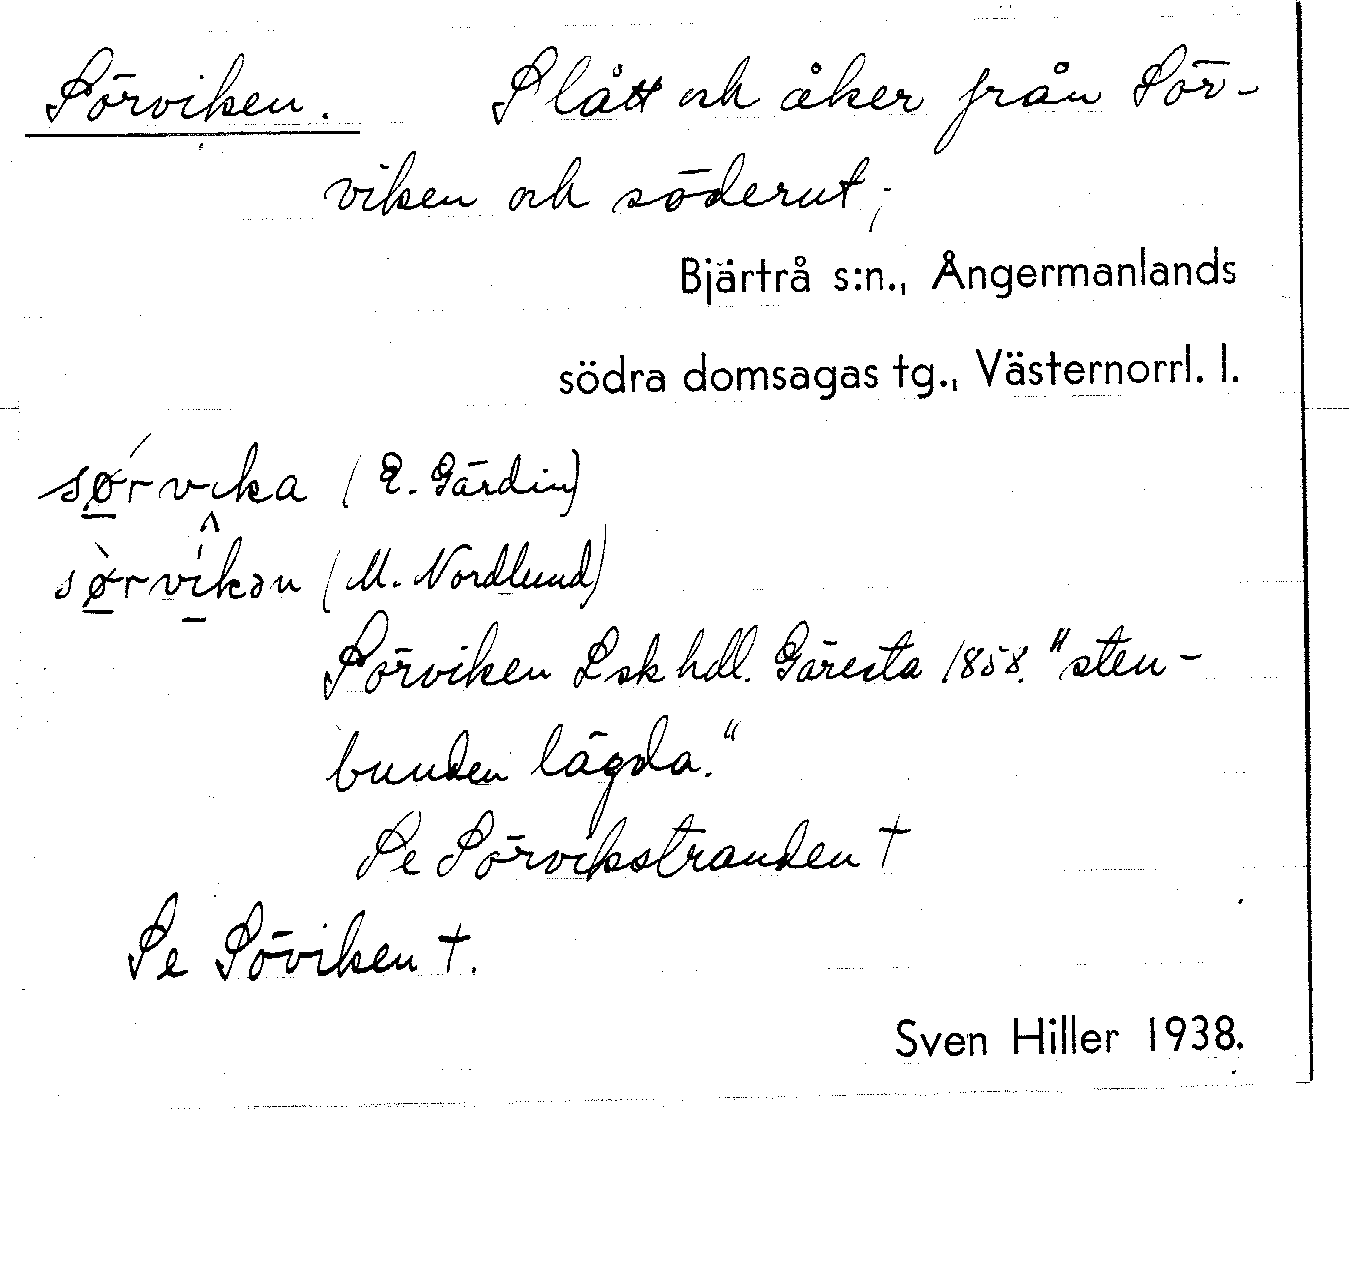 Sörviken. Slått och åker från Sör-
viken och söderut;
Bjärtrå s:n., Ångermanlands
södra domsagas tg., Västernorrl. l.
sǿ̱rvika (E. Gärdin)
sø̱̀rvî̱kən (M. Nordlund)
Sörviken Lsk hdl. Gäresta 1858. "sten-
bunden lägda."
Se Sörvikstranden †
Se Söviken †.
Sven Hiller 1938.